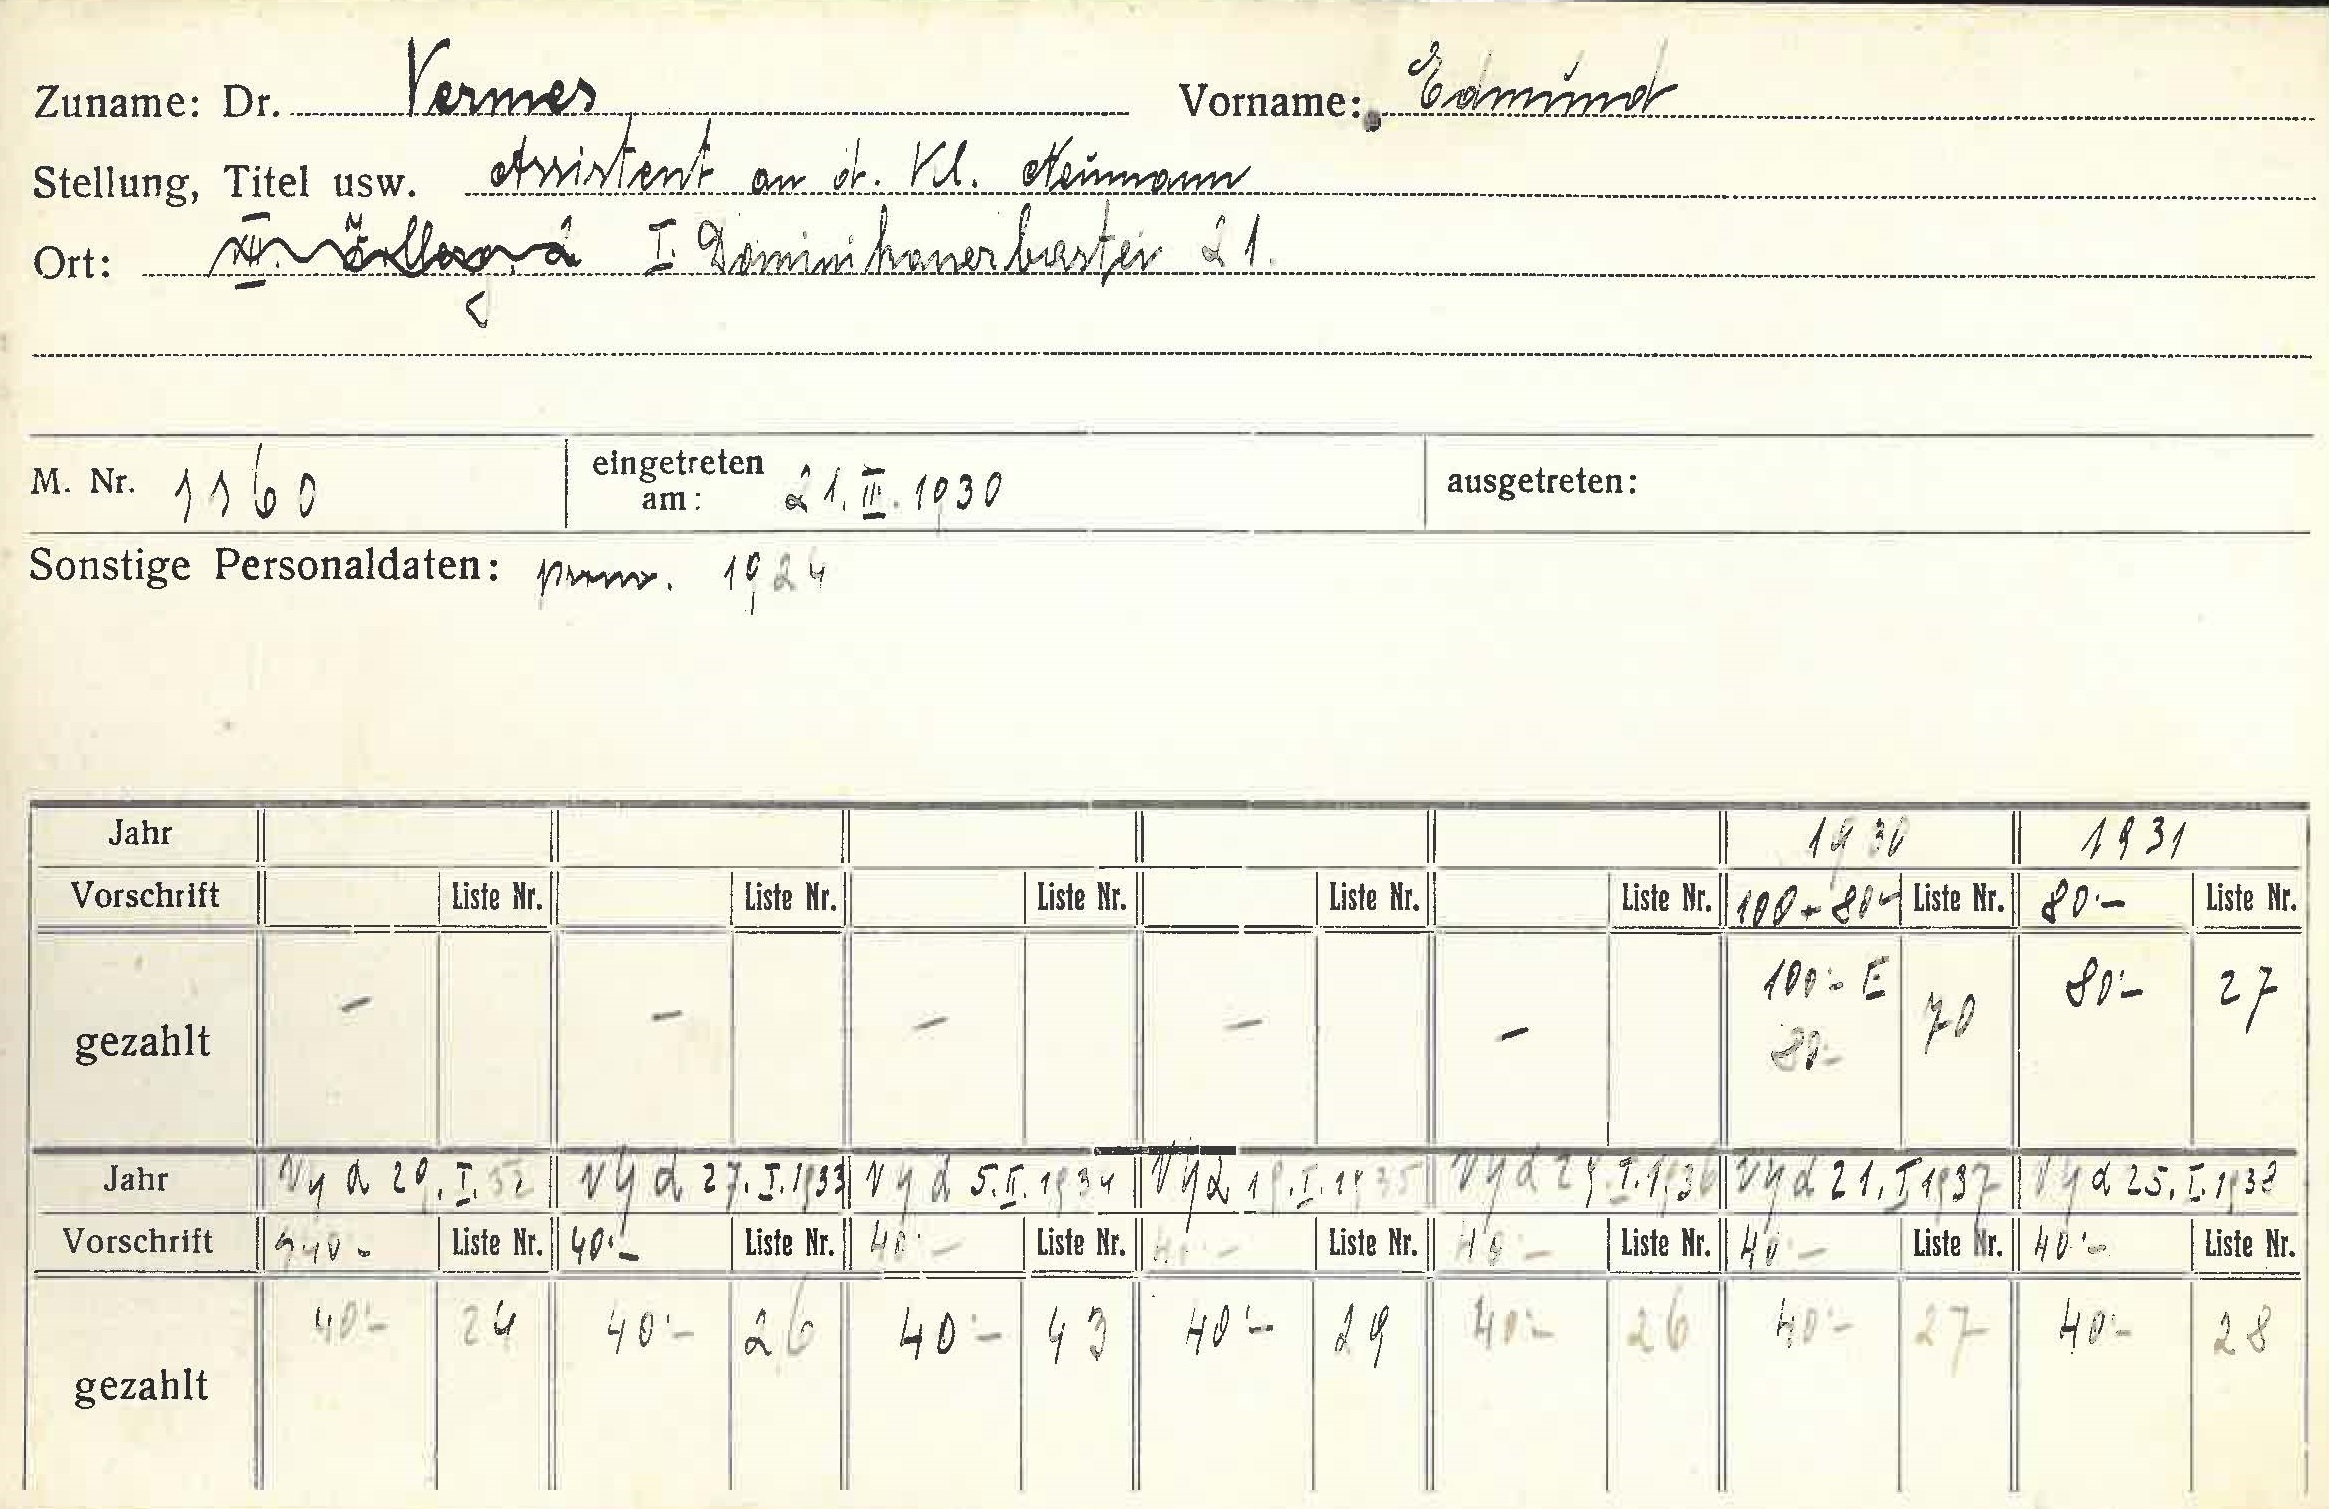 Zuname: Dr. Vermes Vorname: Edmund
Stellung, Titel usw. Assistent an d. Kl. Neumann
Ort: I. Dominikanerbastei 21.
M. Nr. 1160 eingetreten am: 21. III. 1930 ausgetreten:
Sonstige Personaldaten: prom. 1924
Jahr 1930 1931
Vorschrift Liste Nr. Liste Nr. Liste Nr. Liste Nr. Liste Nr. 100 + 80·- Liste Nr. 80·- Liste Nr.
gezahlt - - - - - 100·- E 70 80·- 27
80·-
Jahr 27. I. 1933 5. II. 1934 I. 1935 I. 1936 21. I. 1937 25. I. 1938
Vorschrift Liste Nr. 40·- Liste Nr. 40·- Liste Nr. 40·- Liste Nr. 40·- Liste Nr. 40·- Liste Nr. 40·- Liste Nr.
gezahlt 40·- 24 40·- 26 40·- 43 40·- 29 40·- 26 40·- 27 40·- 28